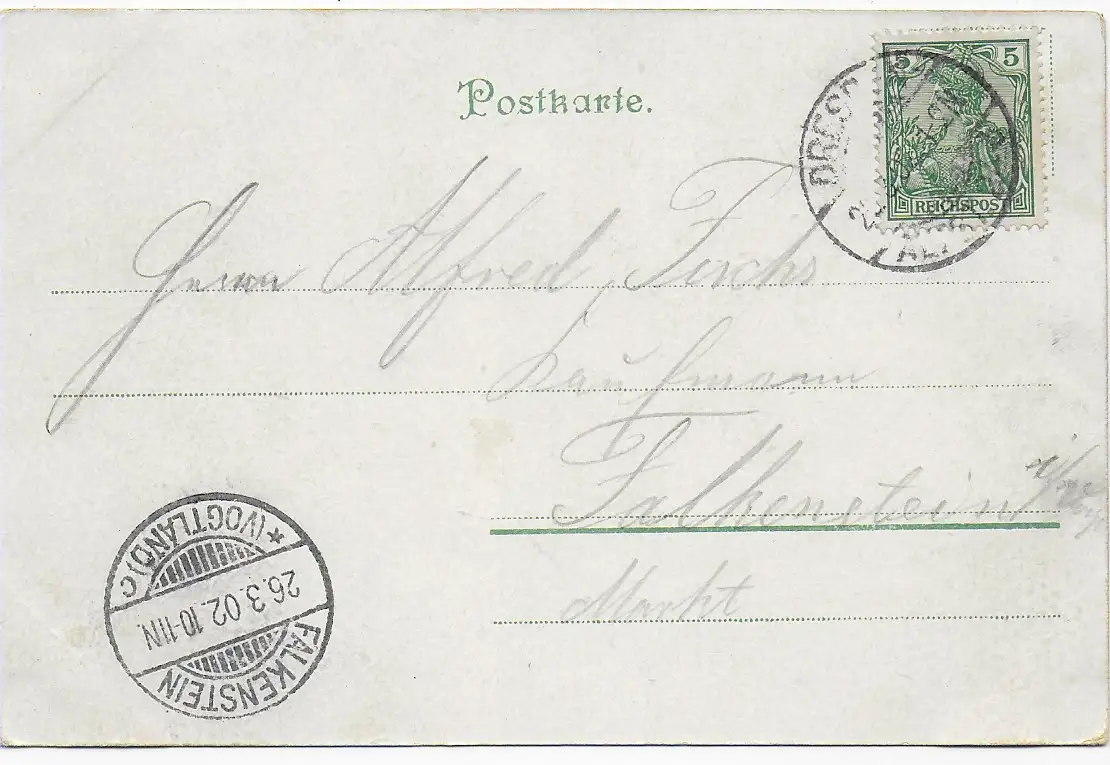 Postkarte.
5 5
REICHSPOST
DRESD
ALT
Herrn Alfred Fuchs
Kaufmann
Falkenstein i/
Markt
FALKENSTEIN
26.3.02.10-11N.
*(VOGTLAND) c